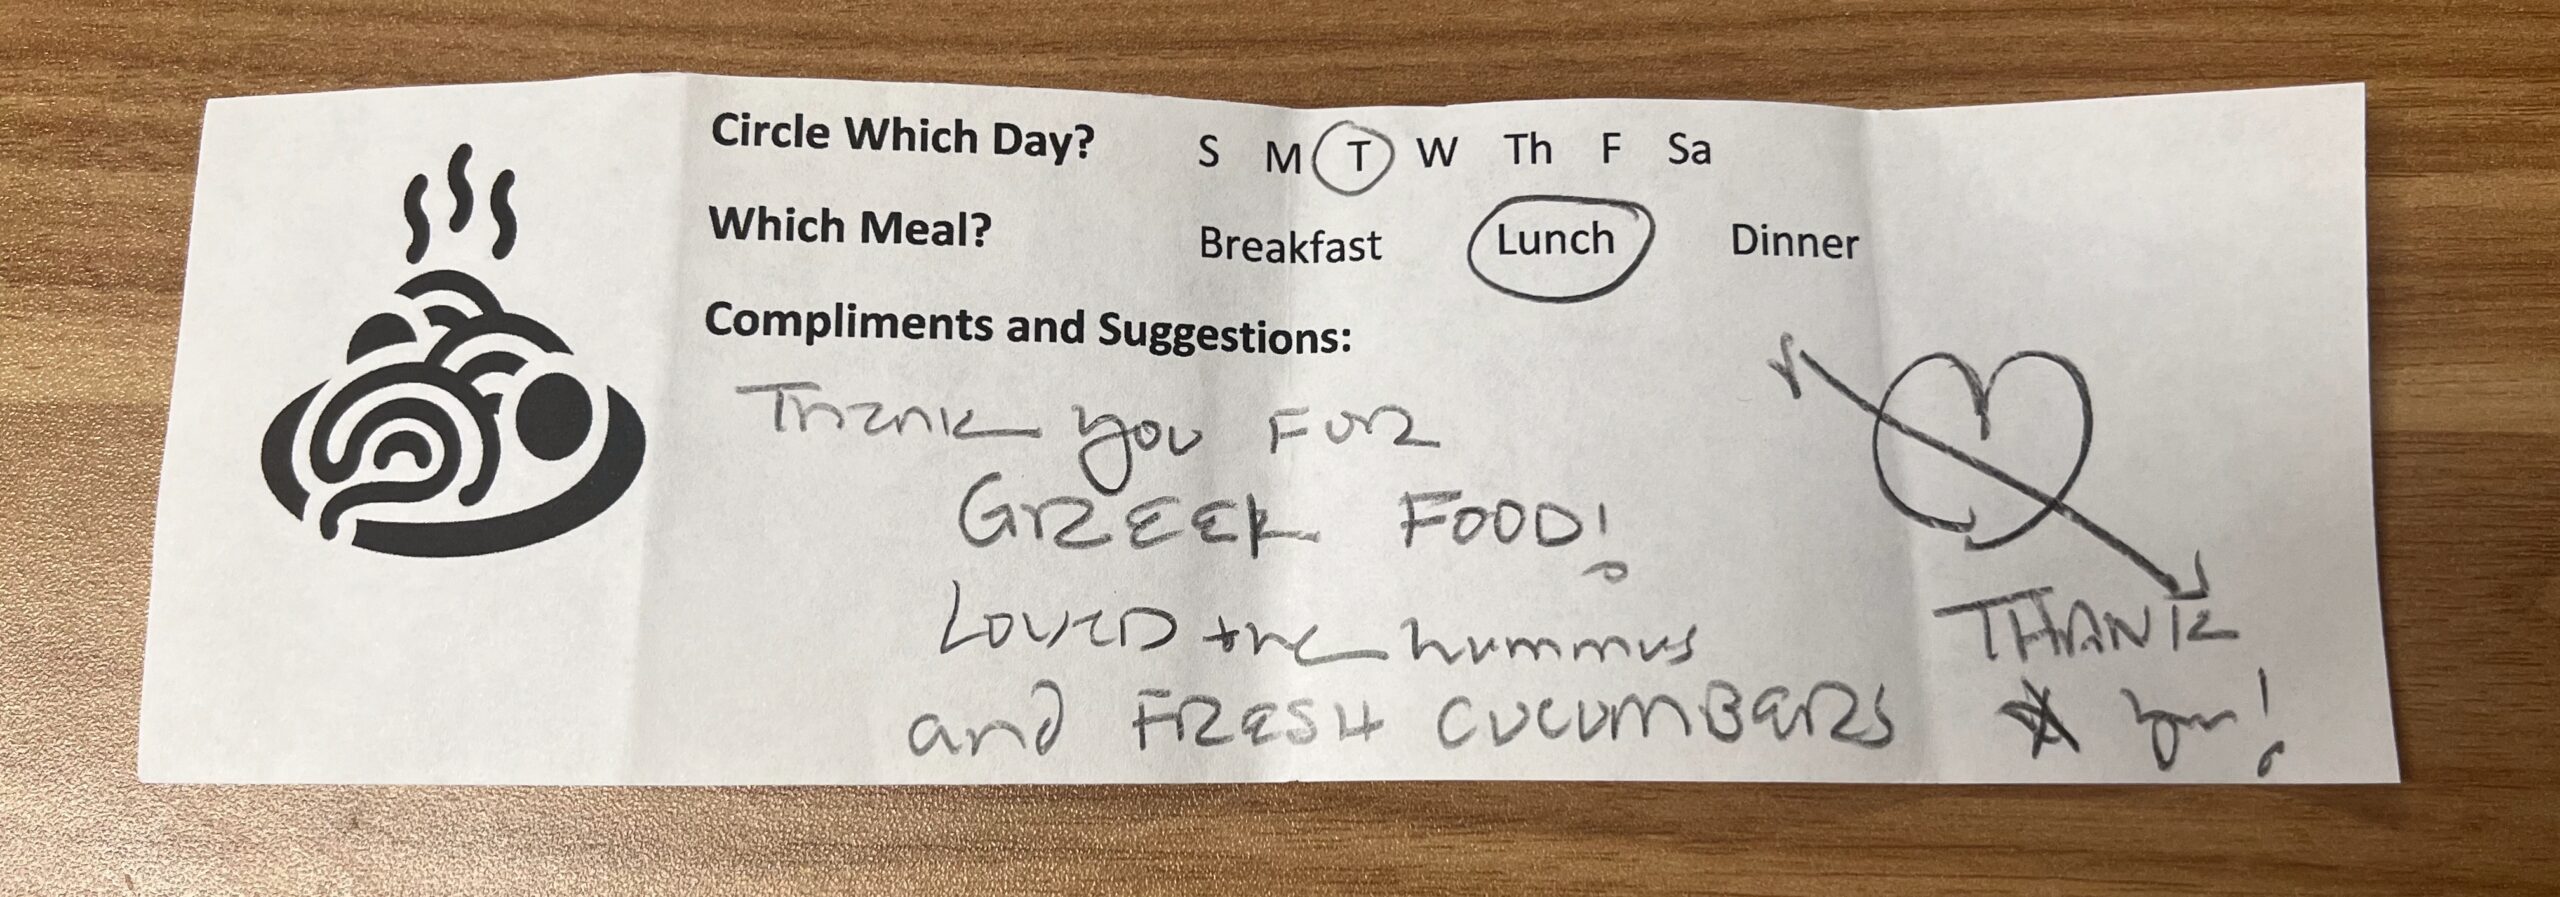 Circle Which Day? S M T W Th F Sa
Which Meal? Breakfast Lunch Dinner
Compliments and Suggestions:
Thank you FOR
GREEK FOOD!
LOVED the hummus
and FRESH CUCUMBERS
THANK
you!